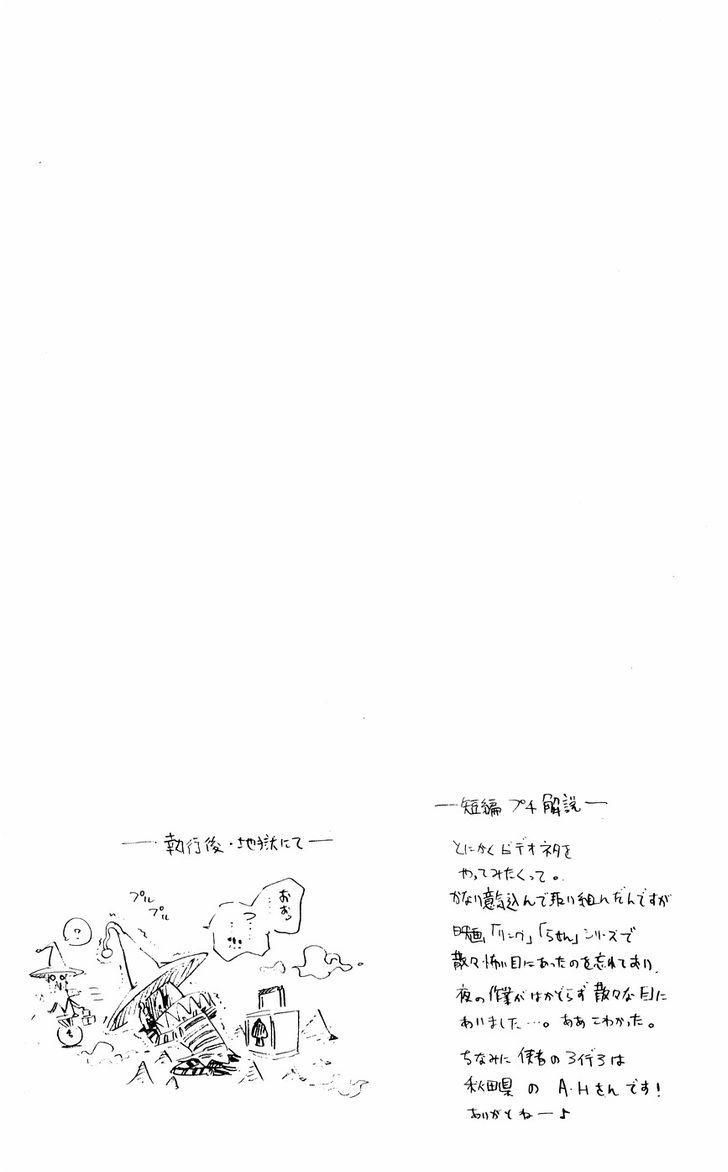 —短編 プチ解説—
とにかくビデオネタを
やってみたくって。
かなり意気込んで取り組んだんですが
映画「リング」「らせん」シリーズで
散々怖い目にあったのを忘れており、
夜の作業がはかどらず散々な目に
あいました…。ああこわかった。
ちなみに使者の
秋田県の A.Hさんです!
ありがとねー♪
—執行後・地獄にて—
プル
プル
?
おおっ